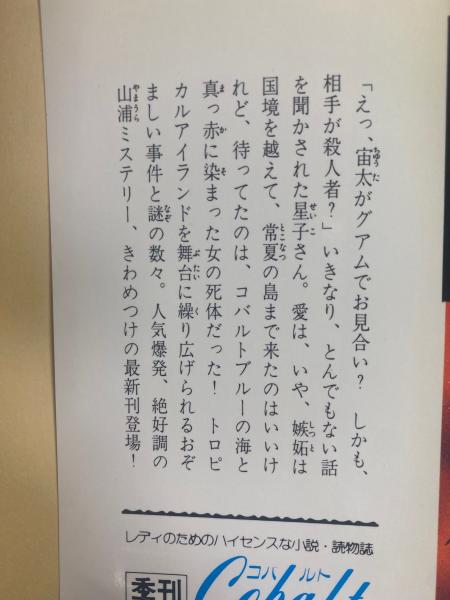 「えっ、宙太がグアムでお見合い？　しかも、
相手が殺人者？」いきなり、とんでもない話
を聞かされた星子さん。愛は、いや、嫉妬は
国境を越えて、常夏の島まで来たのはいいけ
れど、待ってたのは、コバルトブルーの海と
真っ赤に染まった女の死体だった！　トロピ
カルアイランドを舞台に繰り広げられるおぞ
ましい事件と謎の数々。人気爆発、絶好調の
山浦ミステリー、きわめつけの最新刊登場！
レディのためのハイセンスな小説・読物誌
季刊
コバルト
Cobalt